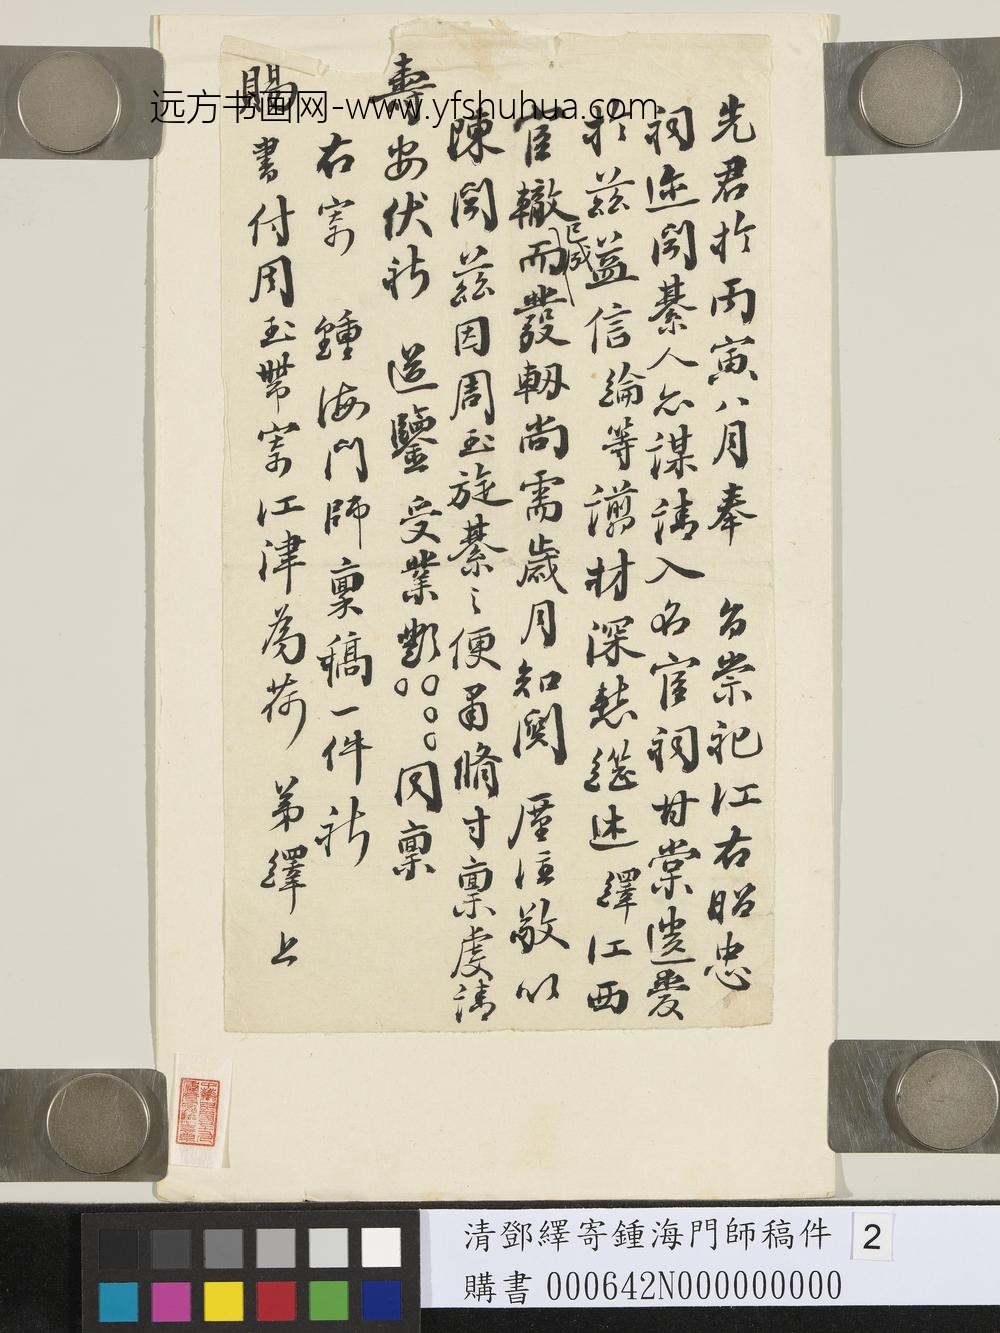 先君於丙寅八月奉 旨崇祀江右昭忠
祠迹聞綦人亦謀請入名宦祠甘棠遺愛
於茲益信綸等譾材深慙繼述繹江西
宦轍而發軔尚需歲月知關 廑注敬以
已成
陳聞茲因周玉旋綦之便肅脩寸稟虔請
壽安伏祈 邇鑒受業鄧○○○○同稟
右寄 鍾海門師稟稿一件祈
賜書付周玉帶寄江津為荷 弟繹上
远方书画网-www.yfshuhua.com
清鄧繹寄鍾海門師稿件 2
購書 000642N000000000